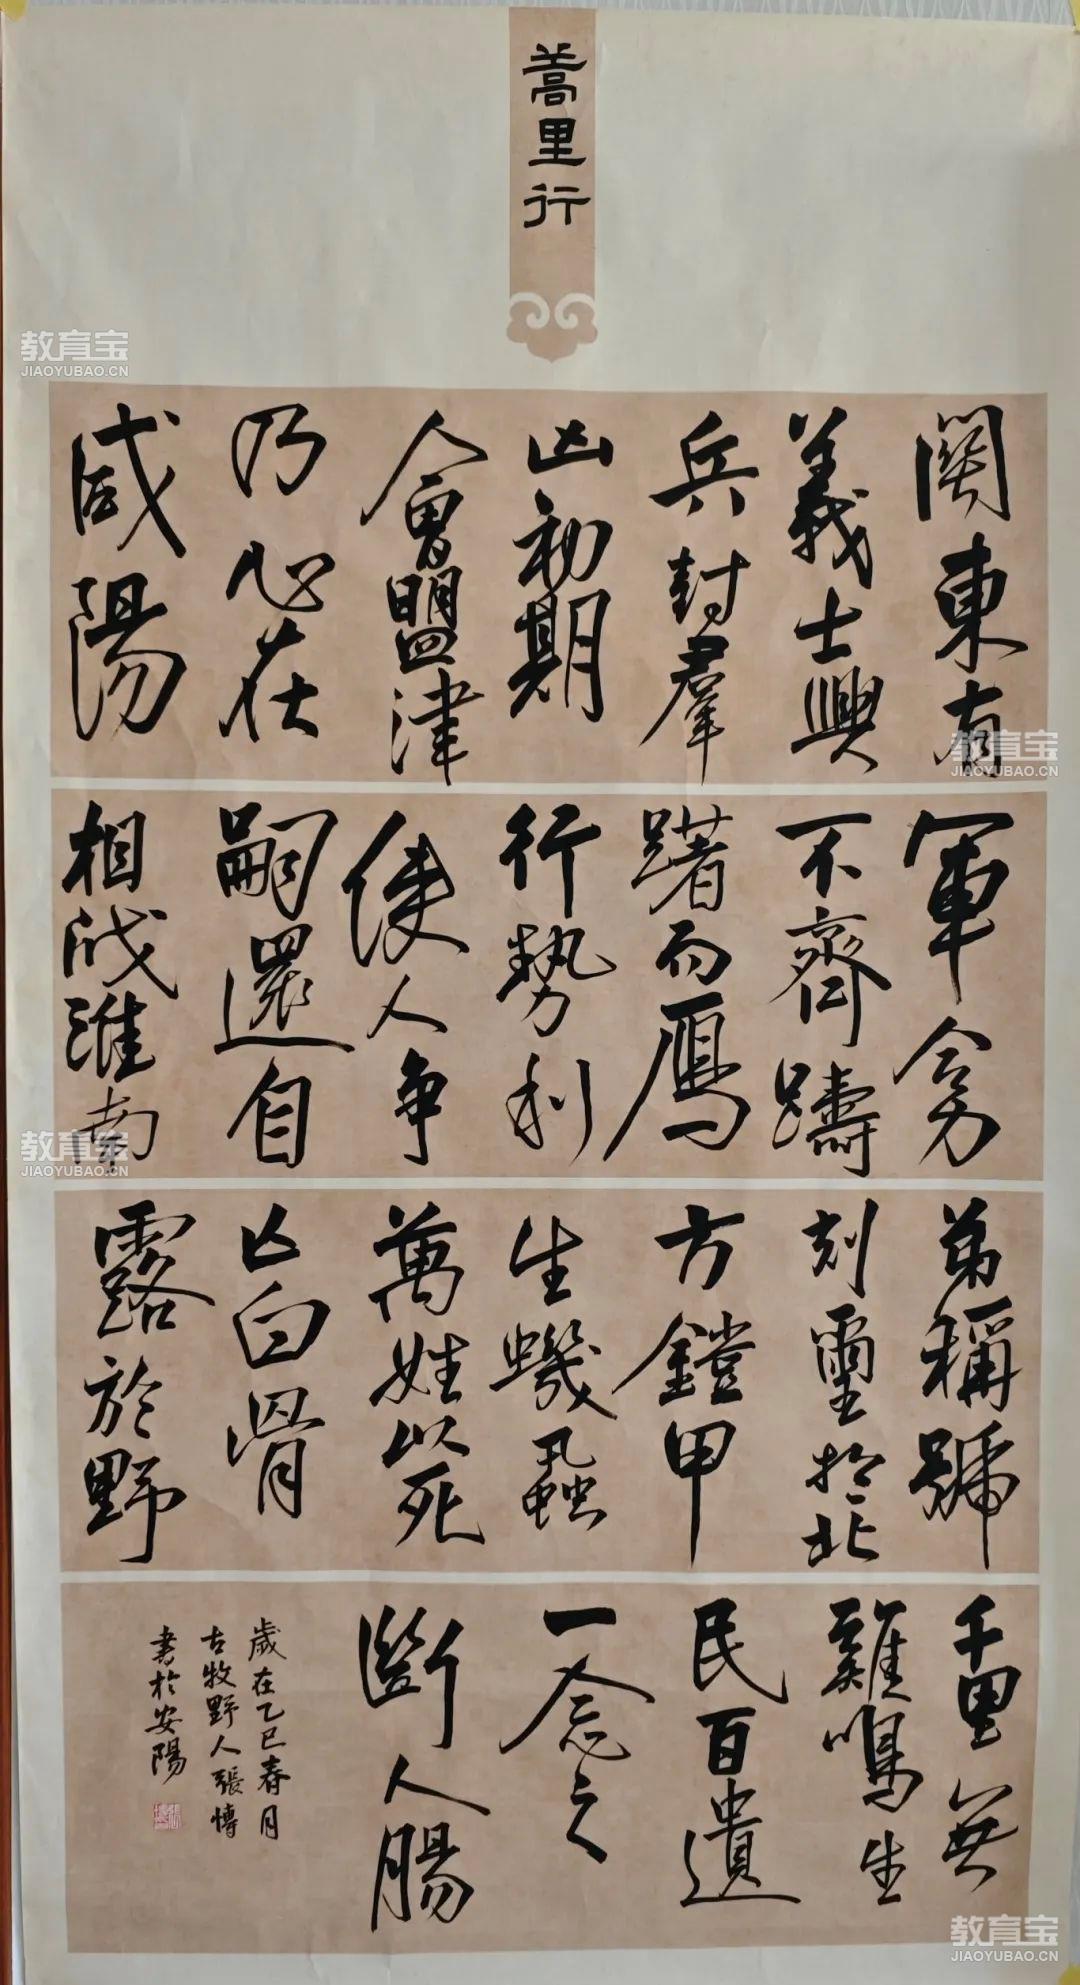 蒿里行
關東有
義士興
兵封羣
凶初期
人會盟津
乃心在
咸陽
軍合力
不齊躊
躇而鴈
行勢利
使人争
嗣還自
相戕淮南
弟稱號
刻璽於北
方鎧甲
生蟣蝨
萬姓以死
亡白骨
露於野
千里無
雞鳴生
民百遺
一念之
斷人腸
歲在乙巳春月
古牧野人張愽
書於安陽
教育宝
JIAOYUBAO.CN
教育宝
JIAOYUBAO.CN
教育宝
JIAOYUBAO.CN
教育宝
JIAOYUBAO.CN